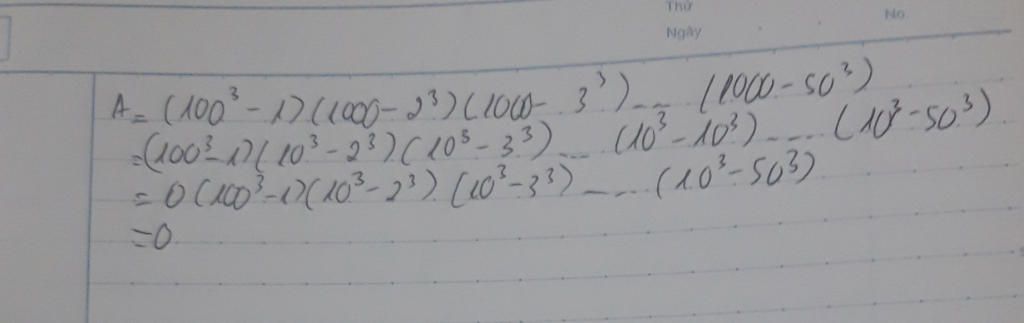 Thứ
No.
Ngày
A = (100³ - 1)(1000 - 2³)(1000 - 3³)... (1000 - 50³)
= (100³ - 1)(10³ - 2³)(10³ - 3³)... (10³ - 10³).... (10³ - 50³)
= 0(100³ - 1)(10³ - 2³).(10³ - 3³)..... (10³ - 50³)
= 0